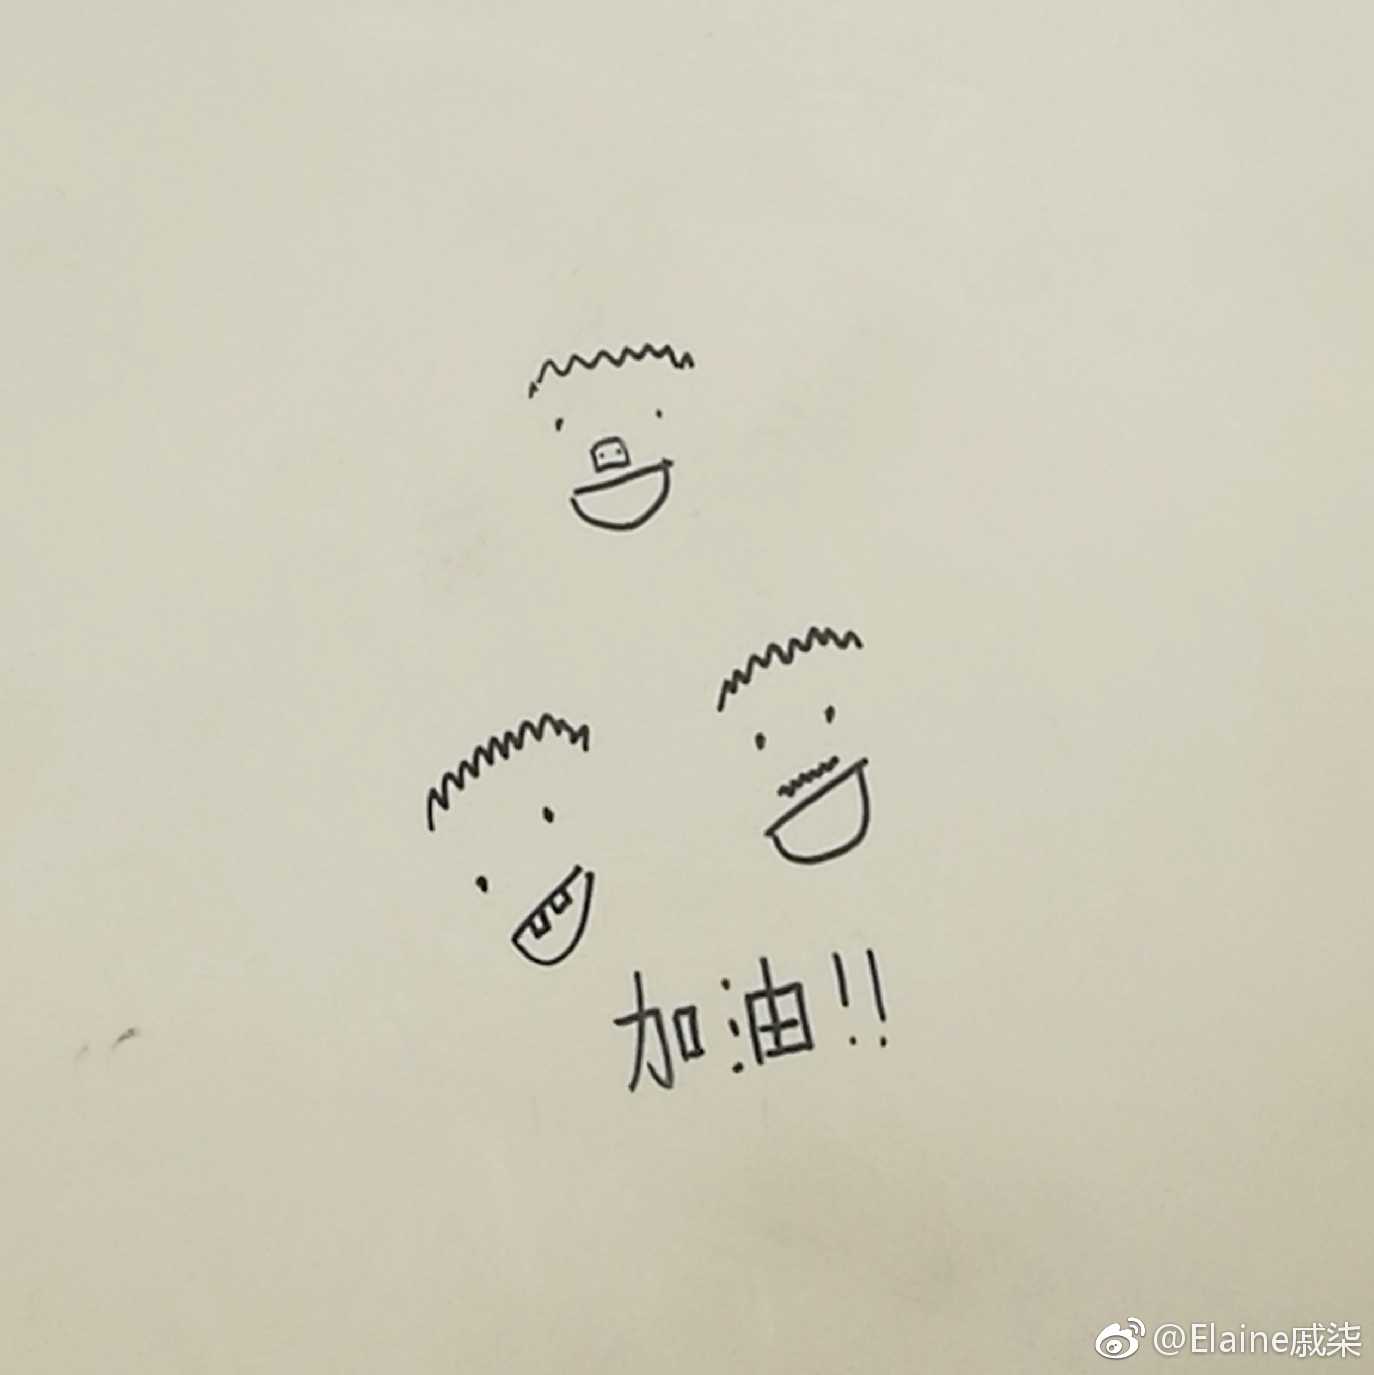 加油!!
@Elaine戚柒